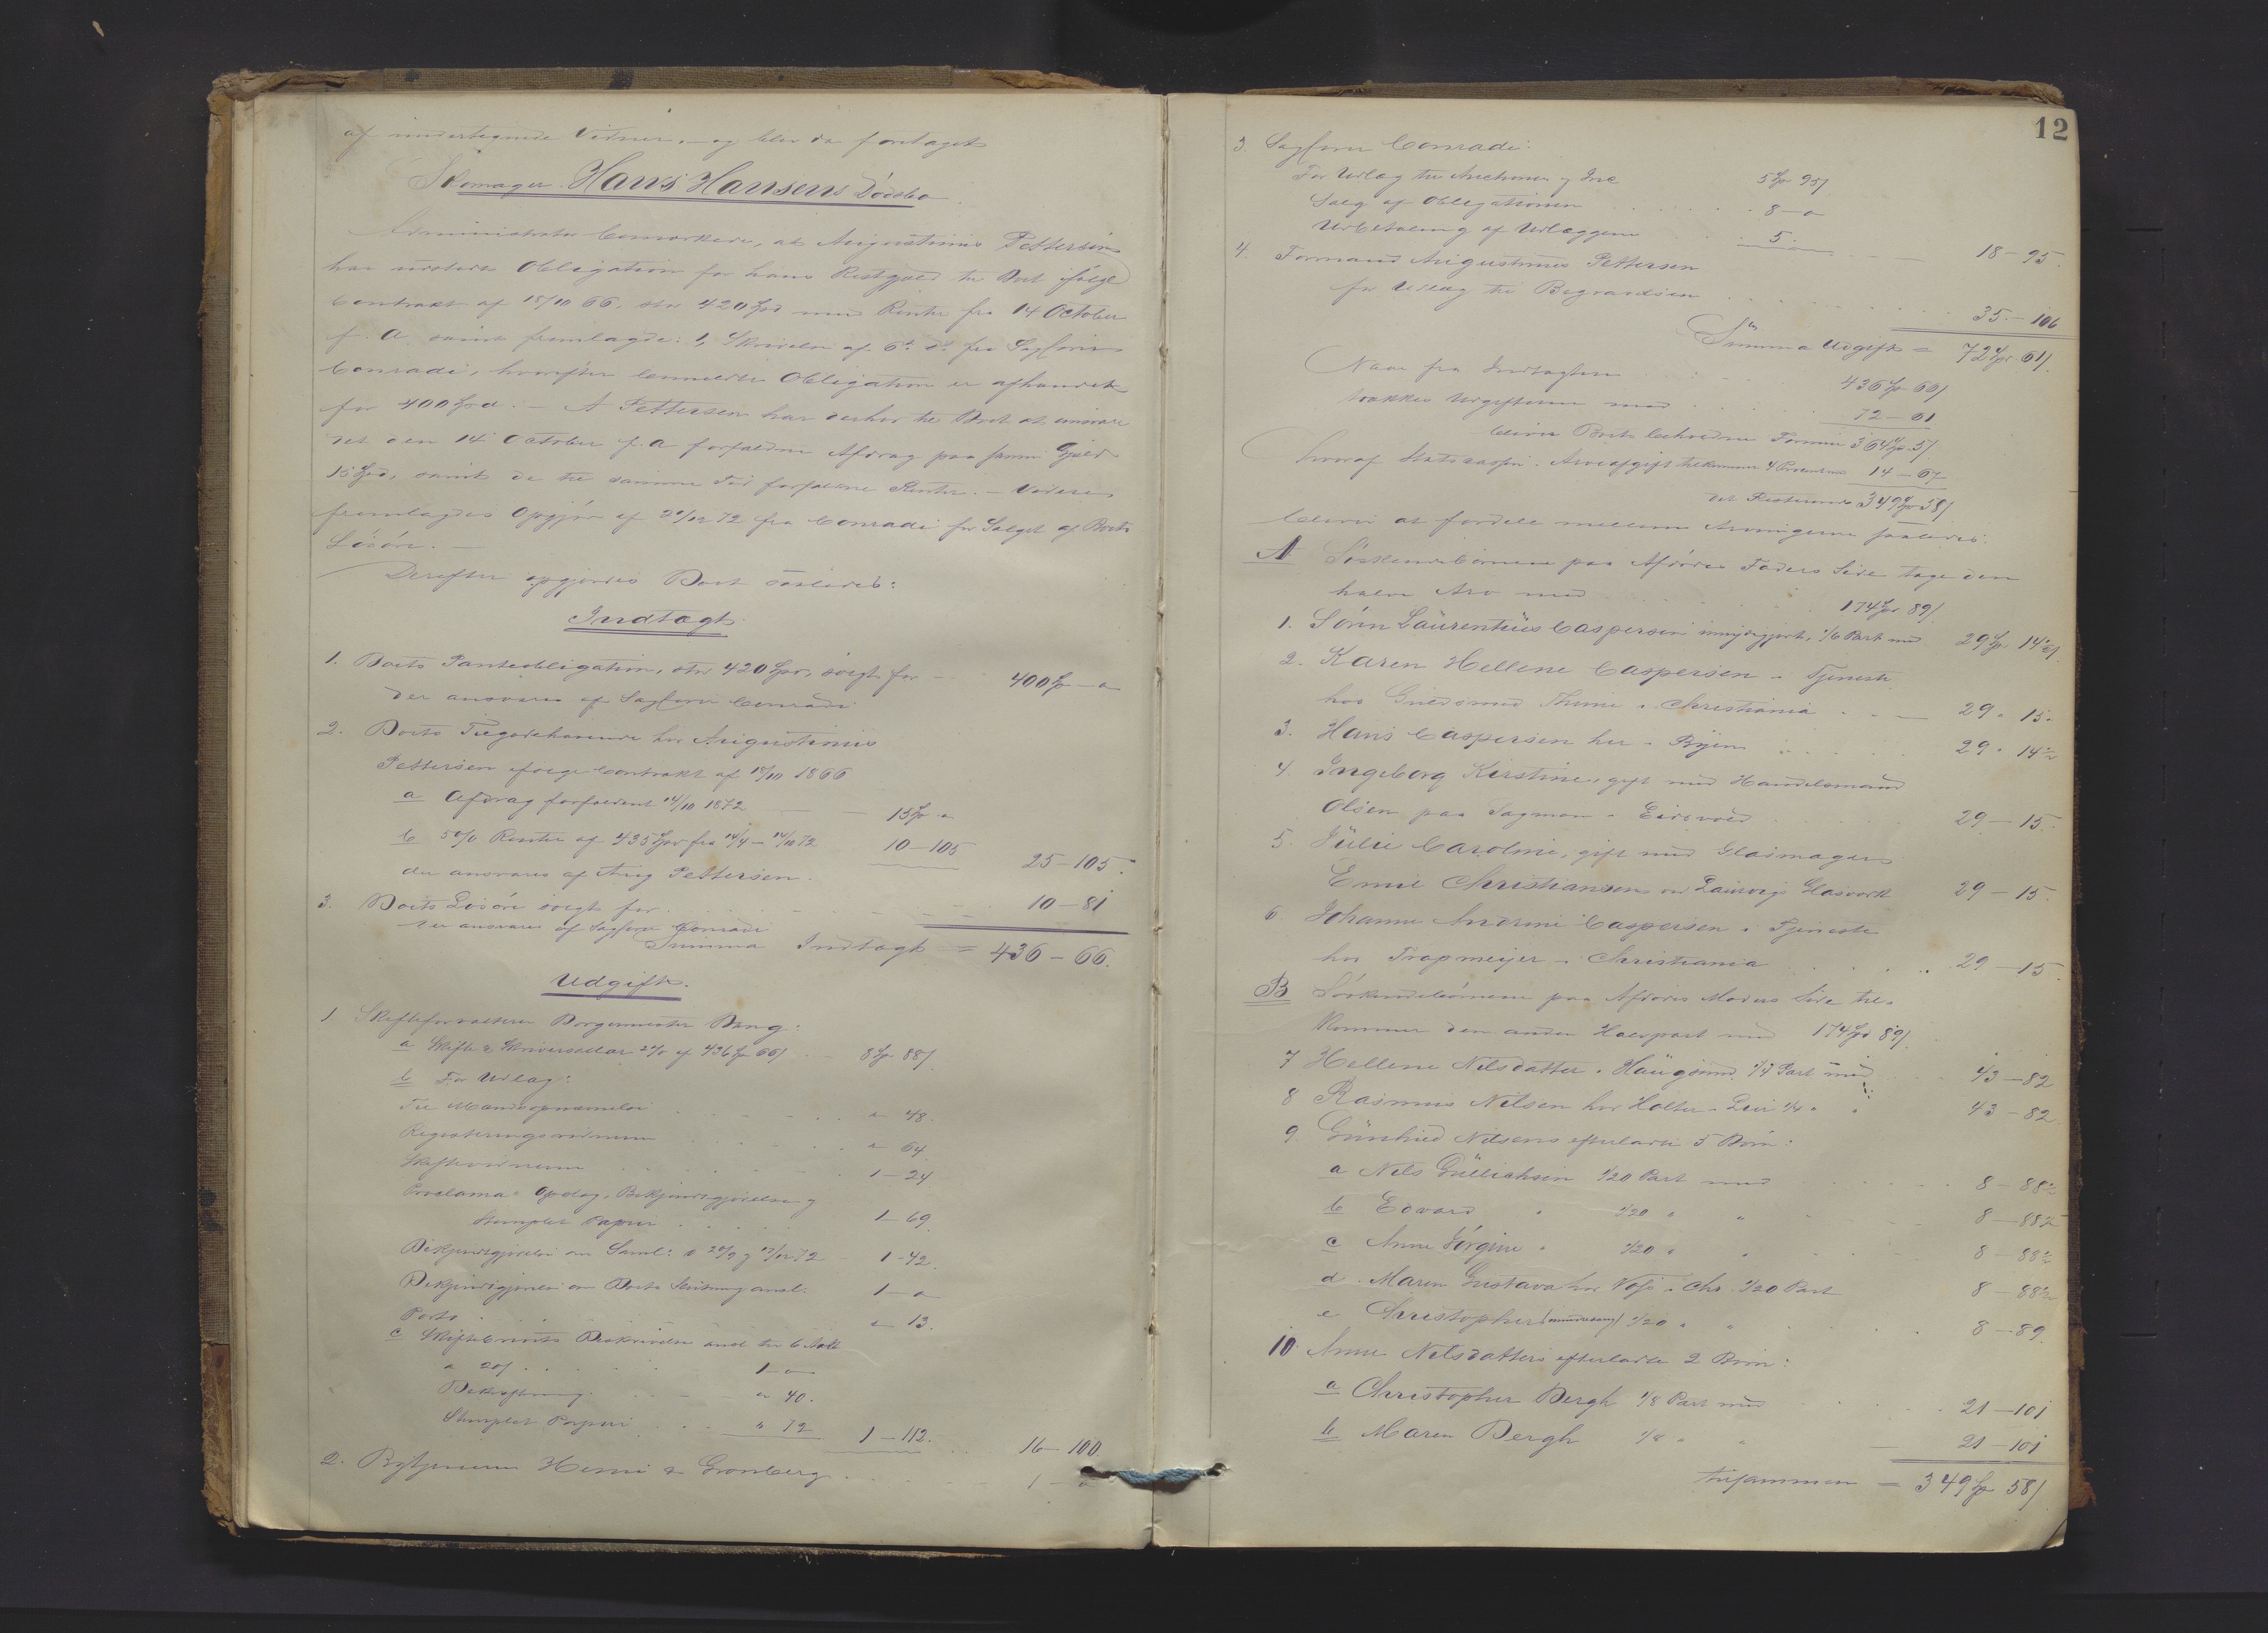 af undertegnede Vidner, – og blev da foretaget
Skomager Hans Hansens Dødsbo
Administrator bemærkede, at Augustinus Pettersen
har udstedt Obligation for hans Restgjæld til Boet ifølge
Contrakt af 18/10 66, stor 420 Spd med Renter fra 14 October
f. A. samt fremlagde: 1, Skrivelse af 6te ds. fra Sagfører
Conradi, hvorefter bemeldte Obligation er afhændet
for 400 Spd. – A Pettersen har derhos til Boet at ansvare
det den 14 October f. A forfaldne Afdrag paa samme Gjæld
15 Spd, samt de til samme Tid forfaldne Renter. – Videre
fremlagdes Opgjør af 20/12 72 fra Conradi for Salget af Boets
Løsøre. –
Derefter opgjordes Boet saaledes:
Indtægt.
1. Boets Panteobligation, stor 420 Spd, solgt for – 400 Sp – "
der ansvares af Sagfører Conradi
2. Boets Tilgodehavende hos Augustinus
Pettersen ifølge Contrakt af 18/10 1866
a Afdrag forfaldent 14/10 1872 – – 15 Sp "
b 5% Renter af 435 Spd fra 14/4 – 14/10 72 10 – 105 25 – 105.
der ansvares af Aug Pettersen.
3. Boets Løsøre solgt for 10 – 81
der ansvares af Sagfører Conradi
Summa Indtægt = 436 – 66.
Udgift.
1. Skifteforvalteren Borgermester Bang:
a Skifte & Skriversallar 2% af 436 Sp 66 8 Sp 88
b For Udlæg:
Til Mændsopnævnelse " 48.
Registreringsvidnerne " 64
Skiftevidnerne 1 – 24
Proclama Opslag, Bekjendtgjørelse og
Stemplet Papir 1 – 69.
Bekjendtgjørelse om Saml: 1 – 42.
Bekjendtgjørelse om Boets Slutning 1 – "
Porto " 13.
c Skiftebrevets Beskrivelse
a 20 1 – "
Bekræftning " 40.
Stemplet Papir " 72 1 – 112. 16 – 100.
2. Bytjenerne & Gronberg 1 – "
12
3. Sagfører Conradi:
For Udlæg til Auctionen 5 Sp 95
Salg af Obligationen 8 – "
Udbetaling af Udlæggene 5 18 – 95.
4. Formand Augustinus Pettersen
for Udlæg til Begravelsen 35 – 106
Summa Udgift = 72 Sp 61
Naar fra Indtægten 436 Sp 66
trækkes Udgifterne med 72 – 61
bliver Boets beholdne Formue 364 Sp 5
hvoraf Statscassen i Arveafgift tilkommer 4 Procent med 14 – 67
det Resterende 349 Sp 58
bliver at fordele mellem Arvingerne saaledes:
A Søskendebørnene paa Afdødes Faders Side tage den
halve Arv med 174 Spd 89
1. Sørin Laurentius Caspersen, 1/6 Part med 29 Sp 14
2. Karen Hellene Caspersen i Tjeneste
hos Guldsmed i Christiania 29 " 15 "
3. Hans Caspersen her i Byen 29 " 14
4. Ingeborg Kirstine, gift med Handelsmand
Olsen paa i Eidsvold 29 – 15.
5. Julie Caroline, gift med Glasmager
Emil Christiansen ved Laurvigs Glasværk 29 – 15.
6. Johanne Andrine Caspersen i Tjeneste
hos Trapmeyer i Christiania 29 – 15.
B Søskendebørnene paa Afdødes Moders Side til-
kommer den anden Halvpart med 174 Spd 89
7 Hellene Nilsdatter i Haugsund 1/4 Part med 43 – 82
8 Rasmus Nilsen hos Holter i Lier 1/4 " " 43 – 82
9 Gunhild Nilsens efterladte 5 Børn:
a Nils Gullichsen 1/20 Part med 8 – 88
b Edvard " 1/20 " " 8 – 88
c Anne Jørgine " 1/20 " " 8 – 88
d Maren Gustava hos Voss i Chr. 1/20 Part 8 – 88
e Christopher (mindreaarig) 1/20 " " 8 – 89.
10. Anne Nilsdatters efterladte 2 Børn:
a Christopher Bergh 1/8 Part med 21 – 101
b Maren Bergh 1/8 " " 21 – 101
tilsammen = 349 Sp 58